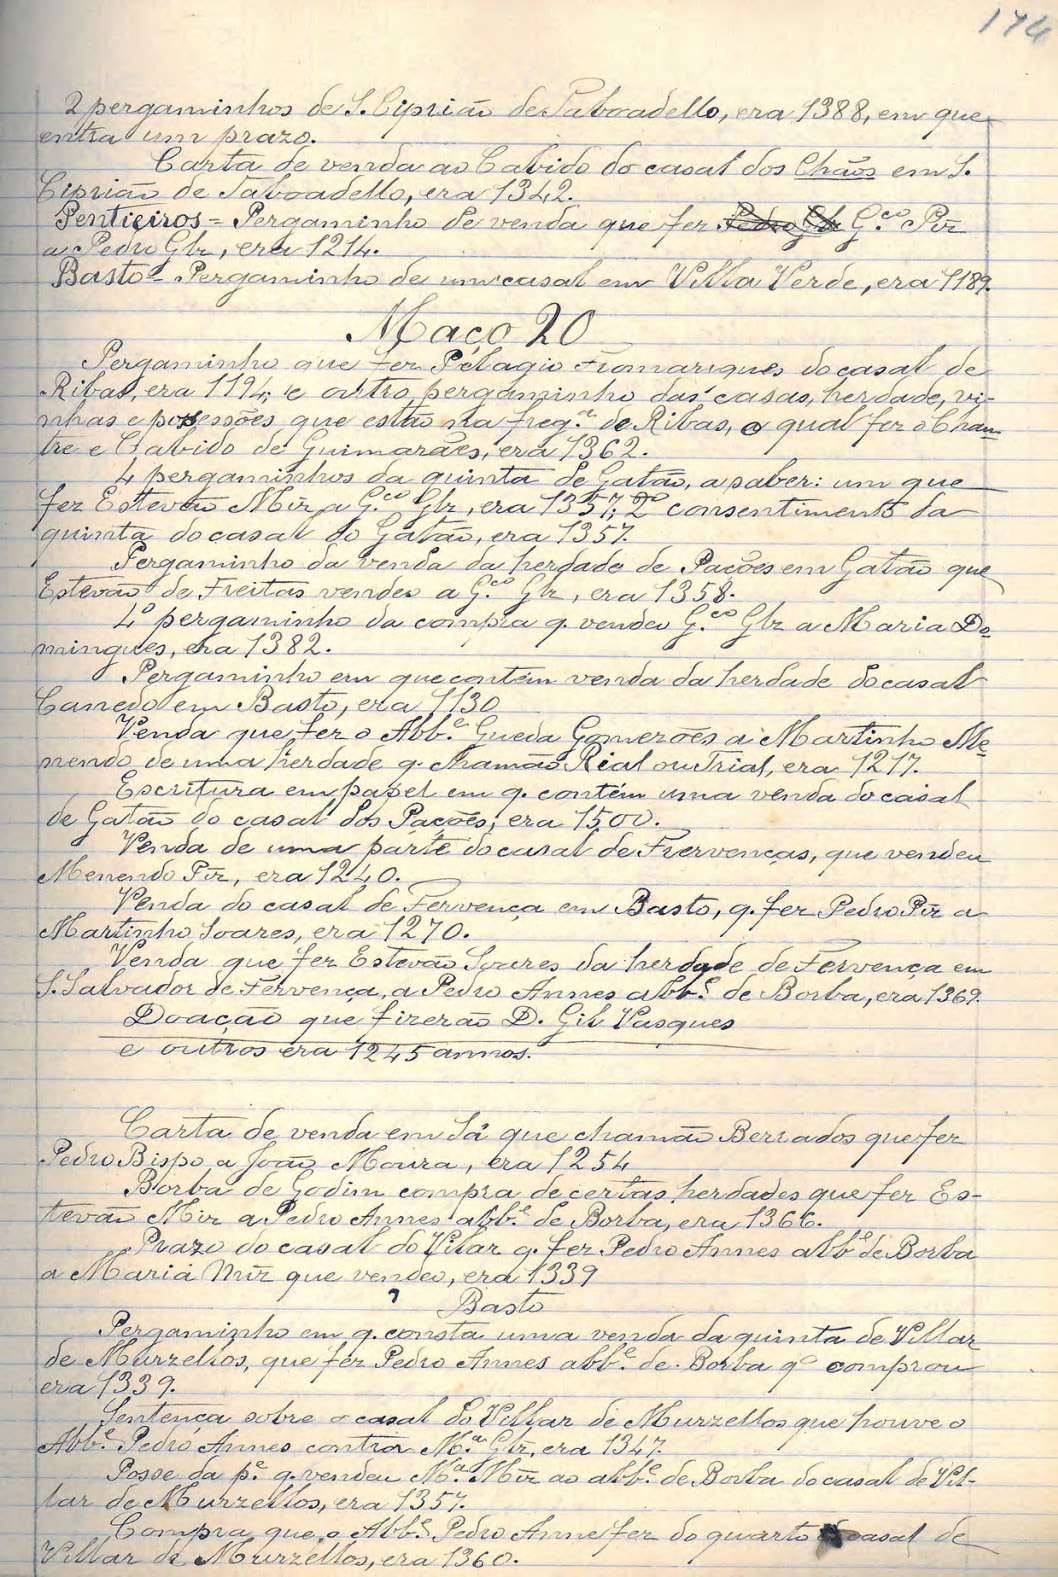 174
2 pergaminhos de S. Ciprião de Taboadello, era 1388, em que
entra um prazo.
Carta de venda ao Cabido do casal dos Chãos em S.
Ciprião de Taboadello, era 1342.
Pentieiros = Pergaminho de venda que fez Pedro Glz G.co Piz
a Pedro Glz, era 1214.
Basto = Pergaminho de um casal em Villa Verde, era 1189.
Maço 20
Pergaminho que fez Pelagio Fromariques do casal de
Ribas, era 1194; e outro pergaminho das casas, herdade, vi-
nhas e possessões que estão na freg.a de Ribas, o qual fez o Chan-
tre e Cabido de Guimarães, era 1362.
4 pergaminhos da quinta de Gatão, a saber: um que
fez Estevão Miz a G.co Glz, era 1357; 2º consentimento da
quinta do casal do Gatão, era 1357.
Pergaminho da venda da herdade de Pacões em Gatão que
Estevão de Freitas vendeo a G.co Glz, era 1358.
4º pergaminho da compra q. vendeu G.co Glz a Maria Do-
mingues, era 1382.
Pergaminho em que contém venda da herdade do casal
Canedo em Basto, era 1130
Venda que fez o Abb.e Gueda Gomezões a Martinho Me-
nendo de uma herdade q. chamão Rial ou Trial, era 1217.
Escritura em papel em q. contém uma venda do casal
de Gatão do casal dos Pacões, era 1500.
Venda de uma parte do casal de Frervenças, que vendeu
Menendo Piz, era 1240.
Venda do casal de Fervença em Basto, q. fez Pedro Piz a
Martinho Soares, era 1270.
Venda que fez Estevão Soares da herdade de Fervença em
S. Salvador de Fervença, a Pedro Annes abb.e de Borba, era 1369.
Doação que fizerão D. Gil Vasques
e outros era 1245 annos.
Carta de venda em Sá que chamão Berrados que fez
Pedro Bispo a João Moura, era 1254
Borba de Godim compra de certas herdades que fez Es-
tevão Miz a Pedro Annes abb.e de Borba, era 1366.
Prazo do casal do Vilar q. fez Pedro Annes abb.e de Borba
a Maria Miz que vendeo, era 1339
? Basto
Pergaminho em q. consta uma venda da quinta de Villar
de Murzellos, que fez Pedro Annes abb.e de Borba q.º comprou
era 1339.
Sentença sobre o casal do Villar de Murzellos que houve o
Abb.e Pedro Annes contra M.a Glz, era 1347.
Posse da p.e q. vendeu M.a Miz ao abb.e de Borba do casal de Vil-
lar de Murzellos, era 1357.
Compra que o Abb.e Pedro Anne fez do quarto casal de
Villar de Murzellos, era 1360.